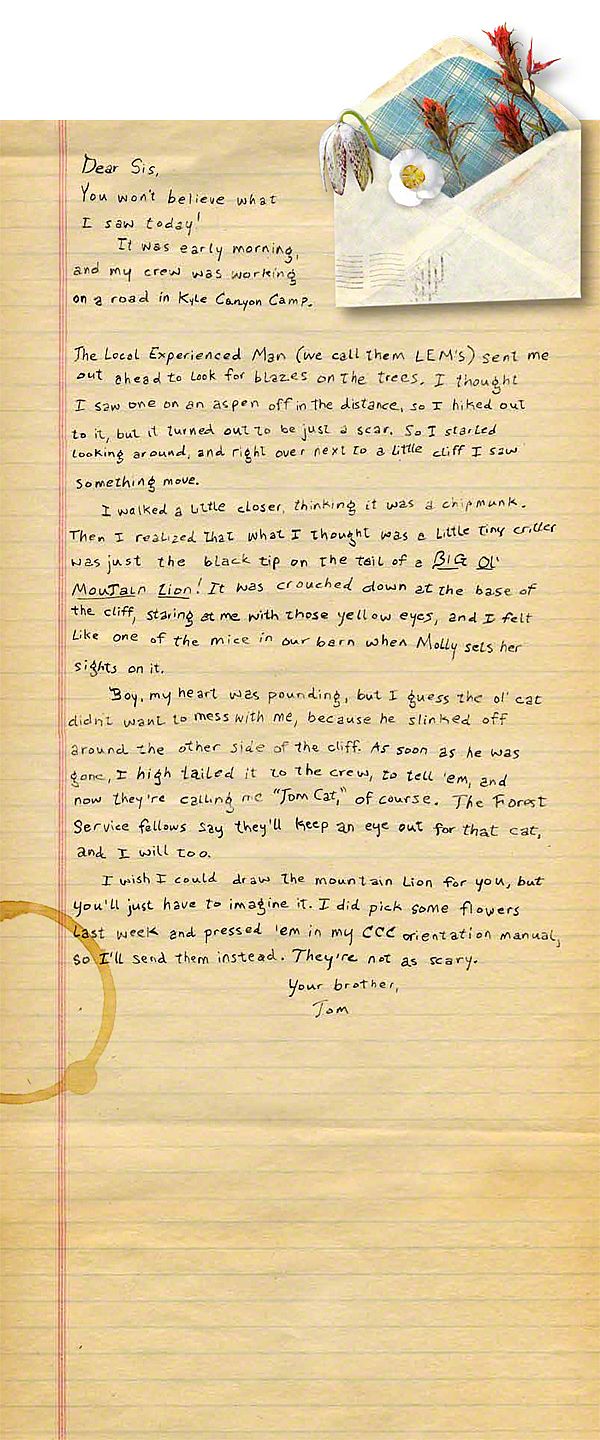 Dear Sis,
You won't believe what
I saw today!
It was early morning,
and my crew was working
on a road in Kyle Canyon Camp.
The Local Experienced Man (we call them LEM's) sent me
out ahead to look for blazes on the trees. I thought
I saw one on an aspen off in the distance, so I hiked out
to it, but it turned out to be just a scar. So I started
looking around, and right over next to a little cliff I saw
something move.
I walked a little closer, thinking it was a chipmunk.
Then I realized that what I thought was a little tiny critter
was just the black tip on the tail of a BIG Ol'
Mountain Lion! It was crouched down at the base of
the cliff, staring at me with those yellow eyes, and I felt
like one of the mice in our barn when Molly sets her
sights on it.
Boy, my heart was pounding, but I guess the ol' cat
didn't want to mess with me, because he slinked off
around the other side of the cliff. As soon as he was
gone, I high tailed it to the crew, to tell 'em, and
now they're calling me "Tom Cat," of course. The Forest
Service fellows say they'll keep an eye out for that cat,
and I will too.
I wish I could draw the mountain lion for you, but
you'll just have to imagine it. I did pick some flowers
last week and pressed 'em in my CCC orientation manual,
so I'll send them instead. They're not as scary.
Your brother,
Tom